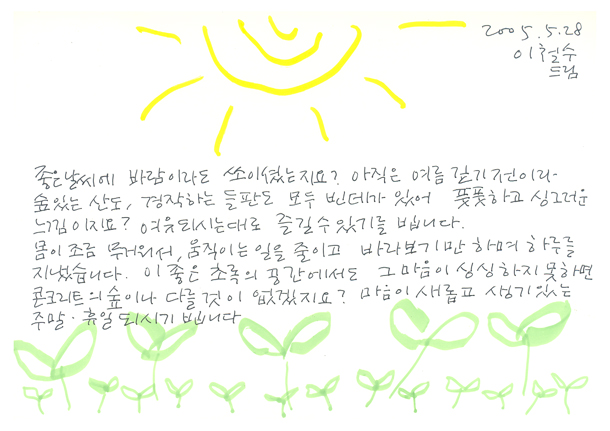 2005.5.28
이철수
드림
좋은날씨에 바람이라도 쏘이셨는지요? 아직은 여름 깊기 전이라
숲있는 산도, 경작하는 들판도 모두 빈데가 있어 풋풋하고 싱그러운
느낌이지요? 여유되시는대로 즐길수있기를 빕니다.
몸이 조금 무거워서, 움직이는 일을 줄이고 바라보기만 하며 하루를
지냈습니다. 이 좋은 초록의 공간에서도 그 마음이 싱싱하지 못하면
콘크리트의 숲이나 다를 것이 없겠지요? 마음이 새롭고 생기있는
주말·휴일 되시기 빕니다